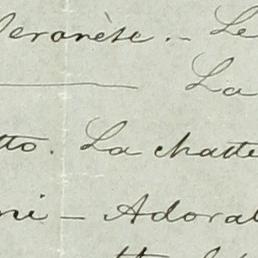 Veronèse. - Le
La
tto. La chatte
ni - Adorat